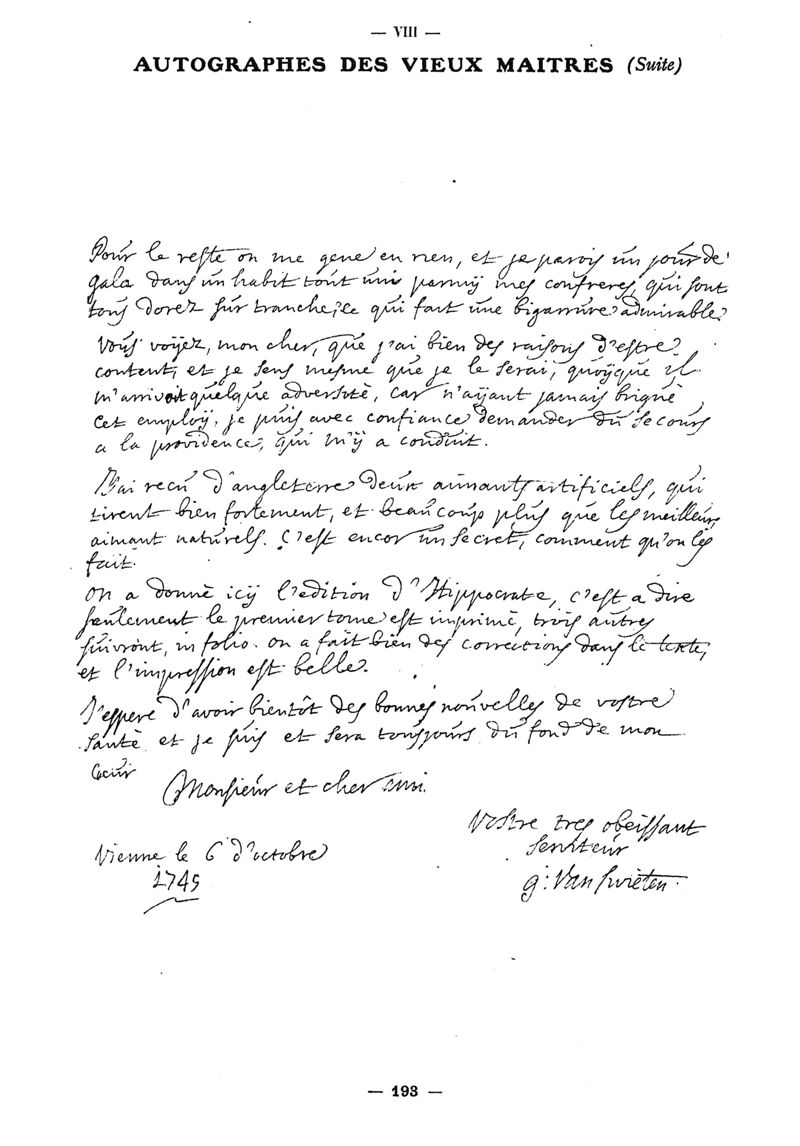 — VIII —
AUTOGRAPHES DES VIEUX MAITRES (Suite)
Pour le reste on me gene en rien, et je parois un jour de
gala dans un habit tout uni parmÿ mes confreres, qui sont
tous dorez sur tranche, ce qui fait une bigarrure admirable.
Vous voÿez, mon cher, que j'ai bien des raisons d'estre
content, et je sens mesme que je le serai, quoÿque il
m'arrivoit quelque adversitè, car n'aÿant jamais briguè
cet emploÿ, je puis avec confiance demander du secours
a la providence, qui m'ÿ a conduit.
J'ai recu d'angleterre deux aimants artificiels, qui
tirent bien fortement, et beaucoup plus que les meilleurs
aimant naturels. C'est encor un secret, comment qu'on les
fait.
on a donnè icÿ l'edition d'Hippocrate, c'est a dire
seulement le premier tome est imprimè, trois autres
suivront, in folio. on a fait bien des corrections dans le texte,
et l'impression est belle.
J'espere d'avoir bientôt des bonnes nouvelles de vostre
santè et je suis et sera tousjours du fond de mon
Coeur
Monsieur et cher ami.
Vostre tres obeissant
serviteur
g: Van Swieten.
Vienne le 6 d'octobre
1745
— 193 —